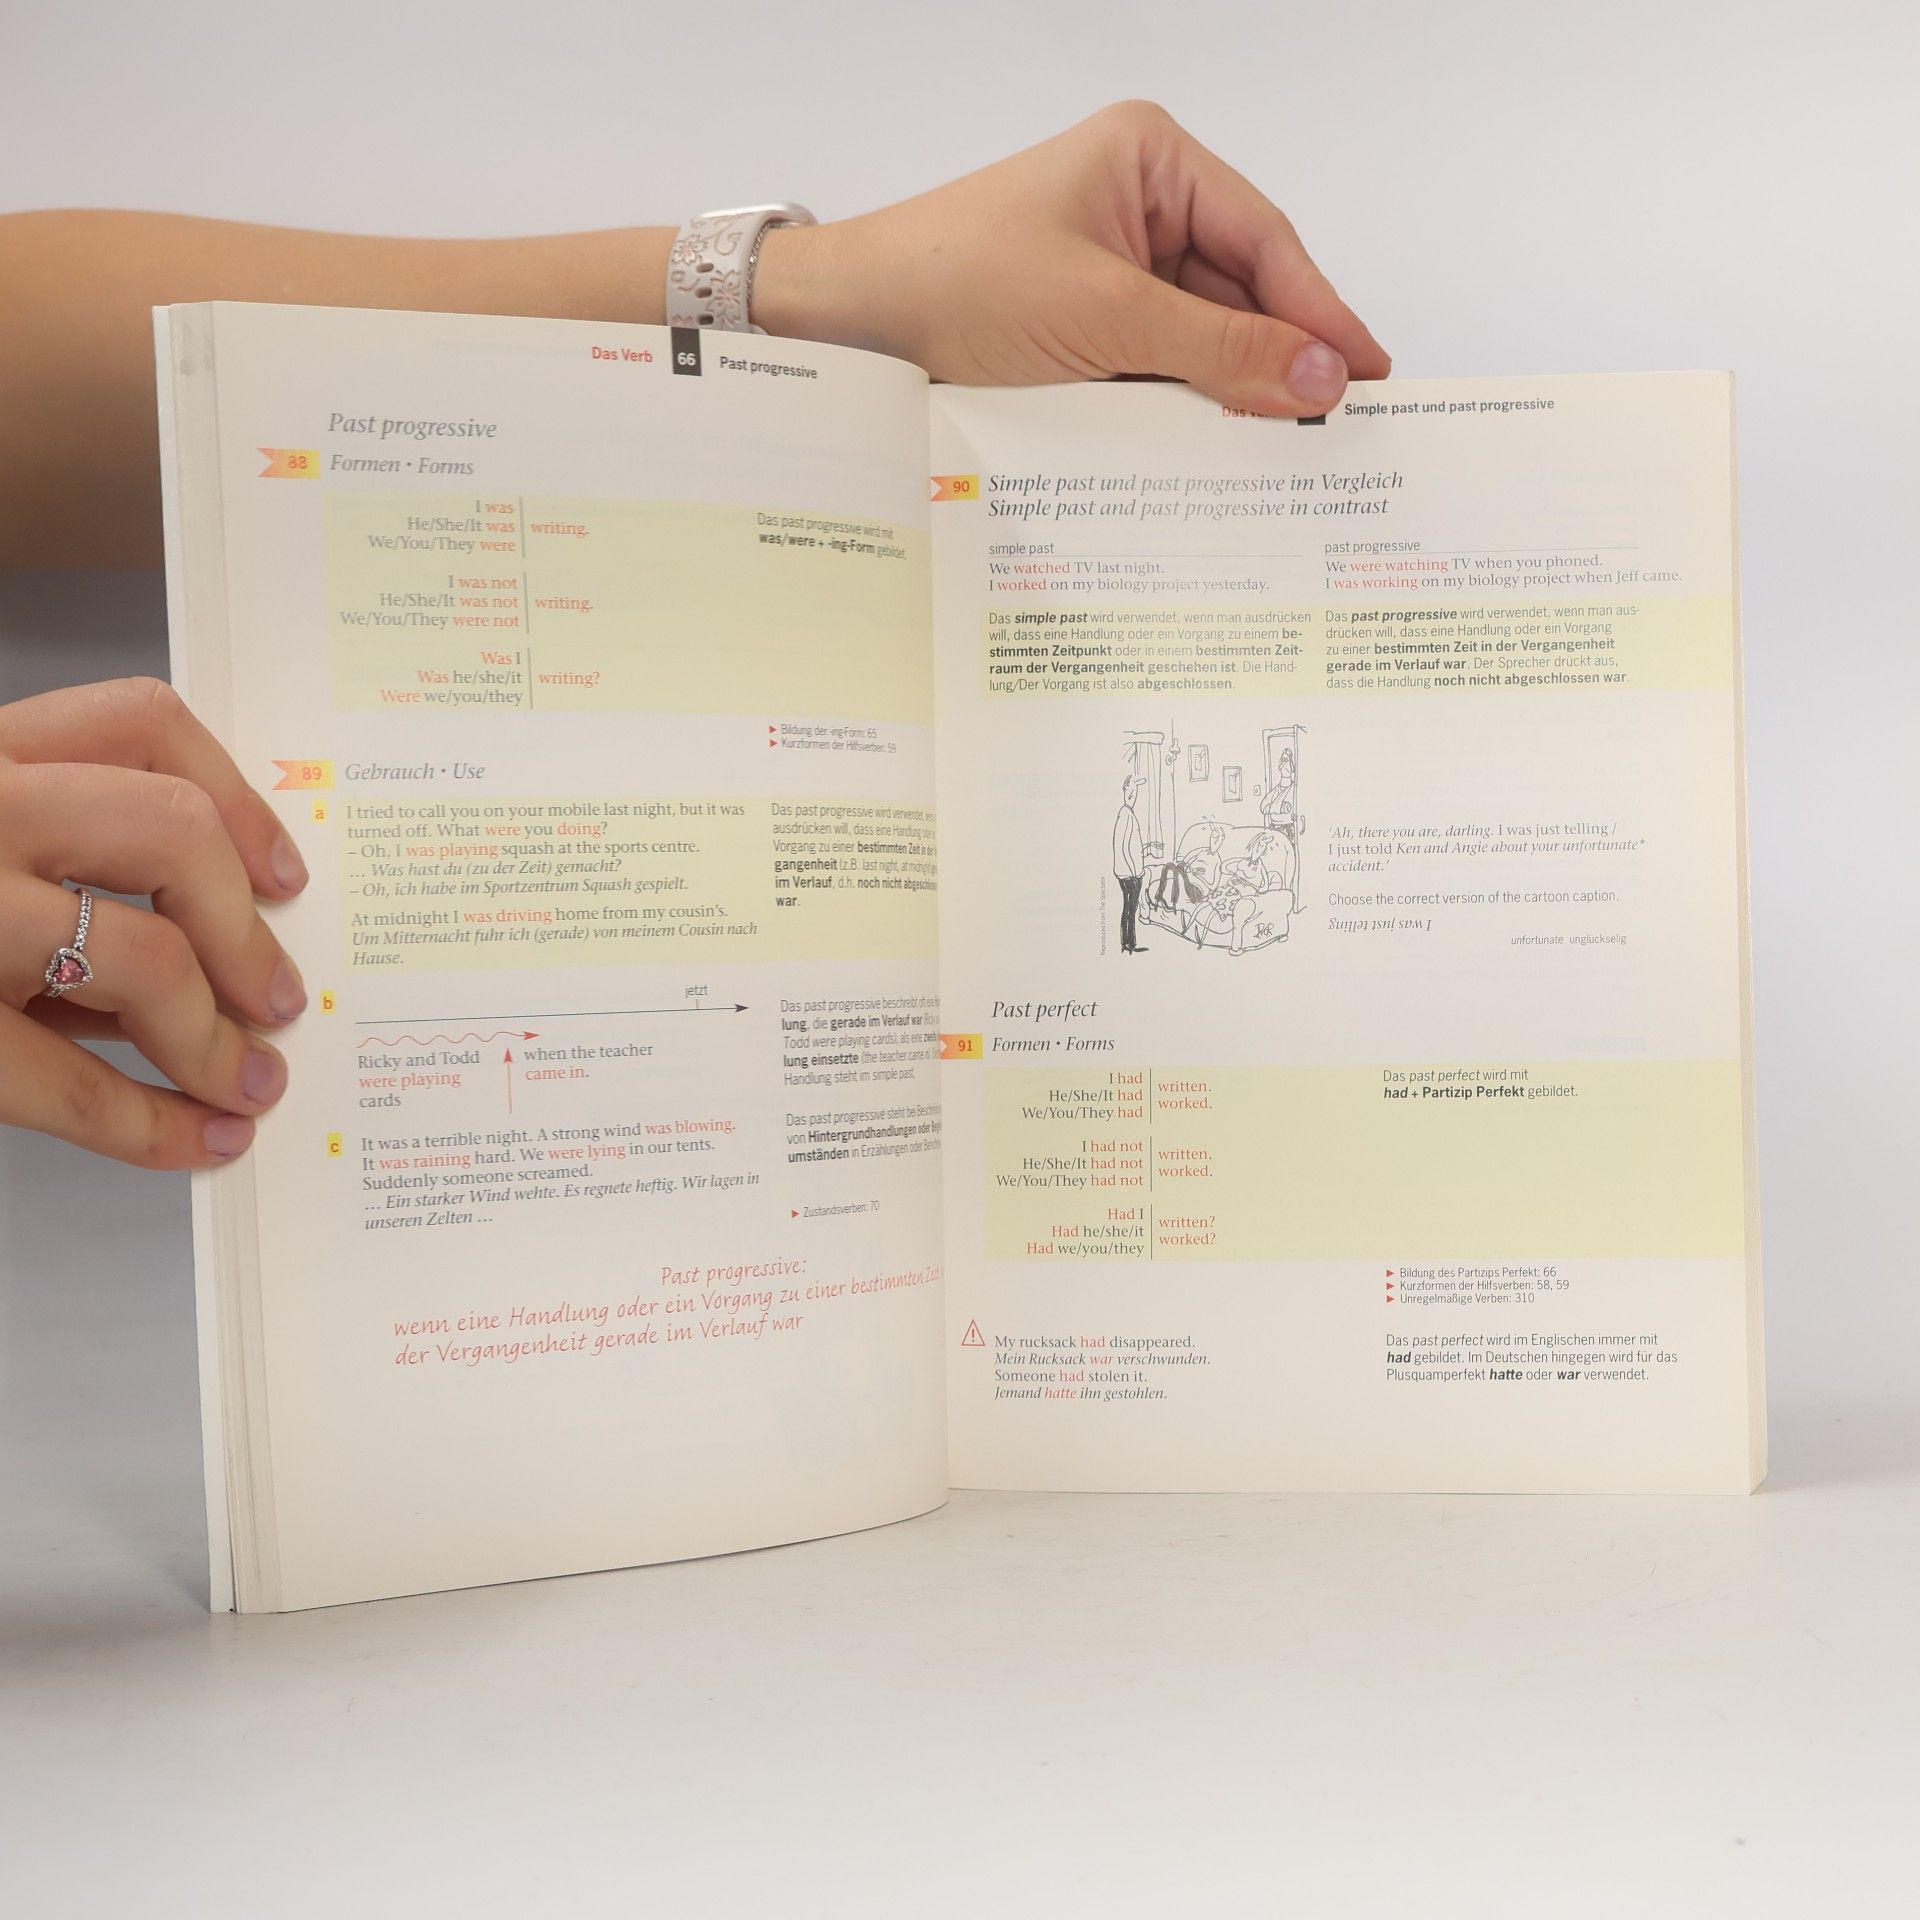 Das Verb 66 Past progressive
Past progressive
88 Formen • Forms
I was
He/She/It was writing.
We/You/They were
Das past progressive wird mit
was/were + -ing-Form gebildet.
I was not
He/She/It was not writing.
We/You/They were not
Was I
Was he/she/it writing?
Were we/you/they
► Bildung der -ing-Form: 65
► Kurzformen der Hilfsverben: 59
89 Gebrauch • Use
a I tried to call you on your mobile last night, but it was
turned off. What were you doing?
– Oh, I was playing squash at the sports centre.
… Was hast du (zu der Zeit) gemacht?
– Oh, ich habe im Sportzentrum Squash gespielt.
At midnight I was driving home from my cousin's.
Um Mitternacht fuhr ich (gerade) von meinem Cousin nach
Hause.
Das past progressive wird verwendet,
ausdrücken will, dass eine Handlung oder
Vorgang zu einer bestimmten Zeit in der
gangenheit (z.B. last night, at midnight)
im Verlauf, d.h. noch nicht
war.
b jetzt
Ricky and Todd
were playing
cards
when the teacher
came in.
Das past progressive beschreibt oft eine
lung, die gerade im Verlauf war
Todd were playing cards), als eine
lung einsetzte (the teacher came
Handlung steht im simple past.
c It was a terrible night. A strong wind was blowing.
It was raining hard. We were lying in our tents.
Suddenly someone screamed.
… Ein starker Wind wehte. Es regnete heftig. Wir lagen in
unseren Zelten …
Das past progressive steht bei
von Hintergrundhandlungen oder
umständen in Erzählungen oder
► Zustandsverben: 70
Past progressive:
wenn eine Handlung oder ein Vorgang zu einer bestimmten Zeit
der Vergangenheit gerade im Verlauf war
Das Simple past und past progressive
90 Simple past und past progressive im Vergleich
Simple past and past progressive in contrast
simple past
We watched TV last night.
I worked on my biology project yesterday.
past progressive
We were watching TV when you phoned.
I was working on my biology project when Jeff came.
Das simple past wird verwendet, wenn man ausdrücken
will, dass eine Handlung oder ein Vorgang zu einem be-
stimmten Zeitpunkt oder in einem bestimmten Zeit-
raum der Vergangenheit geschehen ist. Die Hand-
lung/Der Vorgang ist also abgeschlossen.
Das past progressive wird verwendet, wenn man aus-
drücken will, dass eine Handlung oder ein Vorgang
zu einer bestimmten Zeit in der Vergangenheit
gerade im Verlauf war. Der Sprecher drückt aus,
dass die Handlung noch nicht abgeschlossen war.
Reproduced from The Spectator
'Ah, there you are, darling. I was just telling /
I just told Ken and Angie about your unfortunate*
accident.'
Choose the correct version of the cartoon caption.
I was just telling
unfortunate unglückselig
Past perfect
91 Formen • Forms
I had
He/She/It had
We/You/They had
written.
worked.
Das past perfect wird mit
had + Partizip Perfekt gebildet.
I had not
He/She/It had not
We/You/They had not
written.
worked.
Had I
Had he/she/it
Had we/you/they
written?
worked?
► Bildung des Partizips Perfekt: 66
► Kurzformen der Hilfsverben: 58, 59
► Unregelmäßige Verben: 310
My rucksack had disappeared.
Mein Rucksack war verschwunden.
Someone had stolen it.
Jemand hatte ihn gestohlen.
Das past perfect wird im Englischen immer mit
had gebildet. Im Deutschen hingegen wird für das
Plusquamperfekt hatte oder war verwendet.